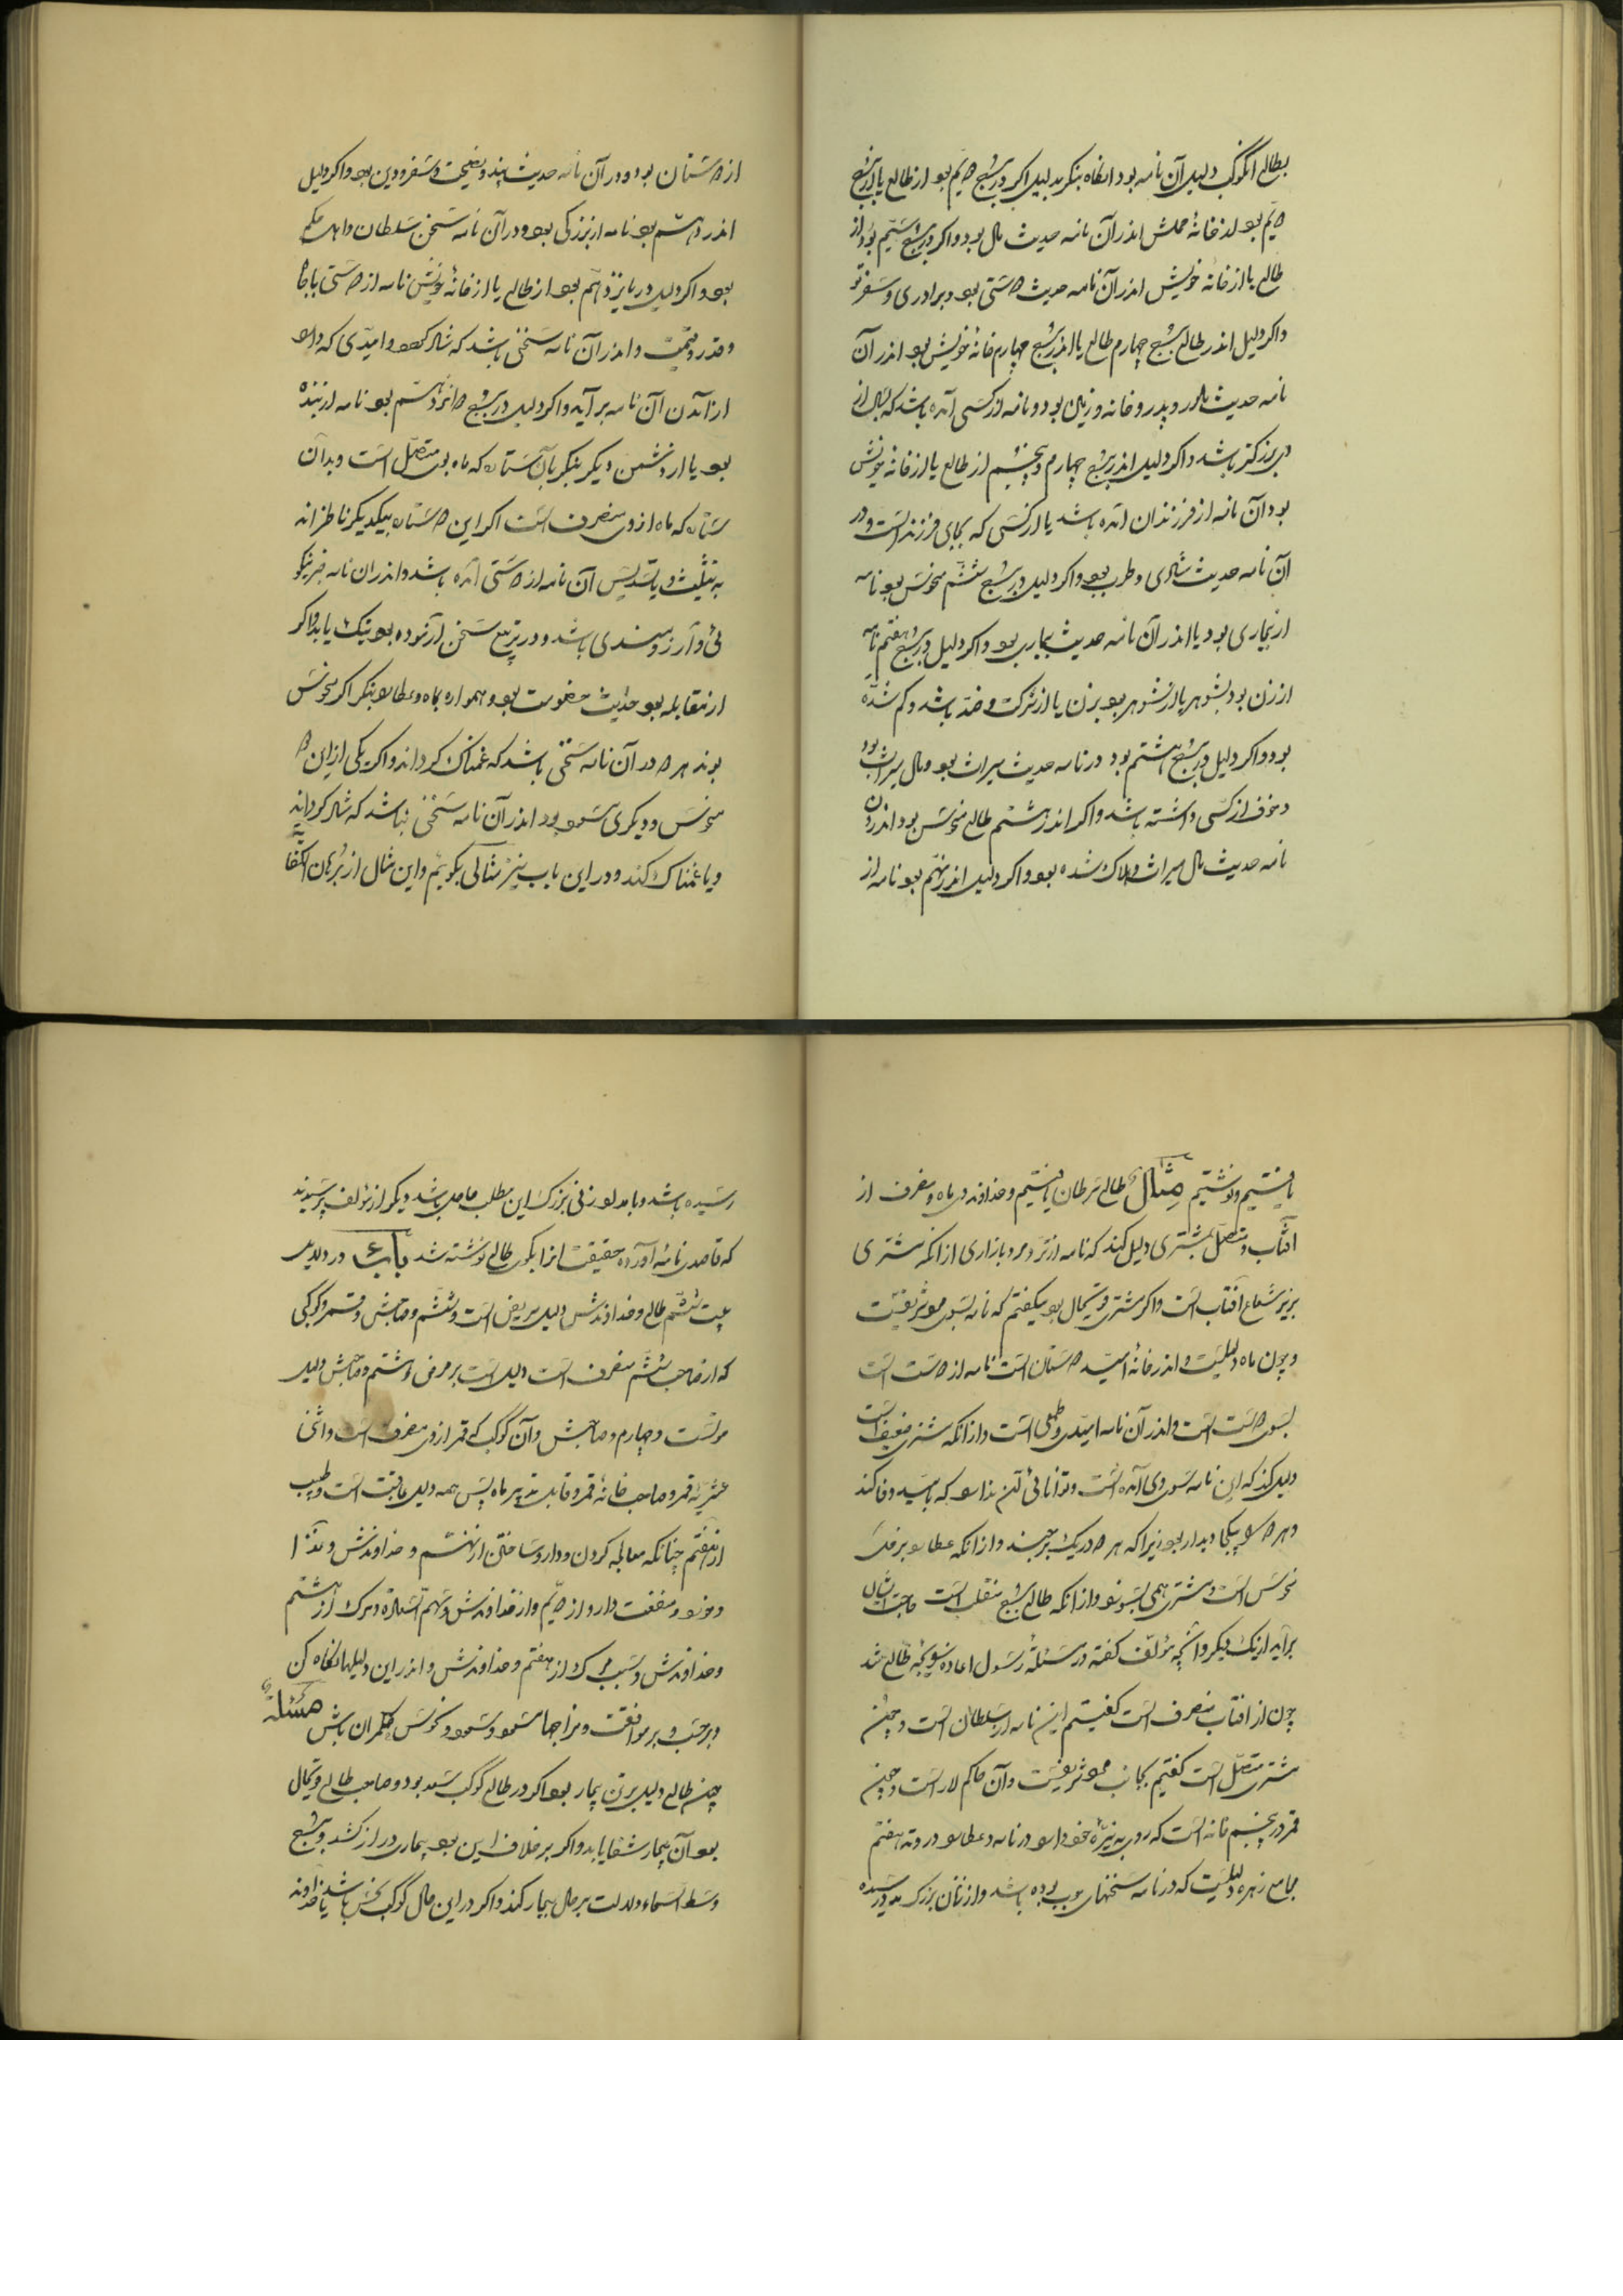 بطالع آنکوکب دلیل آن نامه بود آنگاه بنگر بدلیل اگر در برج دویم بود از طالع یا در برج
دویم بود از خانهٔ محلش اندر آن نامه حدیث مال بود واگر در برج سیّم بود از
طالع یا از خانهٔ خویش اندر آن نامه حدیث دوستی بود و برادری و سفر نو
واگر دلیل اندر طالع برج چهارم طالع یا اندر برج چهارم خانهٔ خویش بود اندر آن
نامه حدیث مادر و پدر و خانه و زمین بود و نامه از کسی آمده باشد که بسال از
وی بزرگتر باشد واگر دلیل اندر برج چهارم و پنجم از طالع یا از خانهٔ خویش
بود آن نامه از فرزندان آمده باشد یا از کسی که بجای فرزند است و در
آن نامه حدیث شادی و طرب بود واگر دلیل در برج ششم نحوس بود نامه
از بیماری بود یا اندر آن نامه حدیث بیماری بود واگر دلیل در برج هفتم نامه
از زن بود بشوهر یا از شوهر بود بزن یا از شرکت و ضد باشد و گم شده
بود واگر دلیل در برج هشتم بود در نامه حدیث میراث بود ومال میراث بود
وخوف از کسی داشته باشد واگر اندر هشتم طالع نحوس بود اندر آن
نامه حدیث مال میراث و هلاک شده بود واگر دلیل اندر نهم بود نامه از
از دوستان بود ودر آن نامه حدیث پند و نصیحت و سفر و دین بود واگر دلیل
اندر دهم بود نامه از بزرگی بود ودر آن نامه سخن سلطان و اهل حکم
بود واگر دلیل در یازدهم بود از طالع یا از خانهٔ خویش نامه از دوستی باجاه
وقدر وقیمت واندر آن نامه سخنی باشد که شاد کند و امیدی که دارد
از آمدن آن نامه برآید واگر دلیل در برج دوازدهم بود نامه از بنده
بود یا از دشمن دیگر بنگر بآن ستاره که ماه بوی متصل است وبدآن
ستاره که ماه از وی منصرف است اگر این دو ستاره بیکدیگر ناظرانه
به تثلیث و یا تسدیس آن نامه از دوستی آمده باشد واندر آن نامه خبر نیکو
ئی و آرزومندی باشد ودر تربیع سخن آزموده بود نیک یا بد واگر
از مقابله بود حدیث خصومت بود وهمواره بماه وعطارد بنگر اگر نحوس
بوند هر دو در آن نامه سخنی باشد که غمناک گرداند واگر یکی از این دو
نحوس و دیگری سعود بود اندر آن نامه سخنی نباشد که شاد گرداند
ویا غمناک کند ودر این باب نیز مثالی بگویم واین مثال از برهان الکفایه
یافتیم ونوشتیم مثال طالع سرطان یافتیم وخداوند وی ماه ومنصرف از
آفتاب ومتصل بمشتری دلیل کند که نامه از نزد مرد بازاری از آنکه مشتری
بزیر شعاع آفتاب است واگر مشتری قویحال بود میگفتم که نامه بسوی مؤثریفیست
وچون ماه دلیلست واندر خانهٔ امید دوستان است نامه از دوست است
بسوی دوست است واندر آن نامه امیدی وطمعی است واز آنکه مشتری ضعیف است
دلیل کند که این نامه بسوی وی آمده است وتوانائی آن ندارد که بامید وفا کند
وهر دو را بیکجا دیدار بود زیرا که هر دو در یک برجند واز آنکه عطارد بر فلک
نحوس است ومشتری همی بسوزد واز آنکه طالع برج منقلب است حاجت ایشان
برآید از یک دیگر وآنچه مؤلف گفته در مسئلهٔ رسول اعاده نتیجه طالع شد
چون از آفتاب منصرف است گفتیم این نامه از سلطان است و چون
مشتری متصل است گفتیم بجانب مؤثریفیست وآن حاکم لار است و چون
قمر در پنجم خانه است که روی به نیرهٔ خود دارد در نامه وعطارد در وتد هفتم
مجامع زهره دلیلست که در نامه سخنهای خوب بوده باشد واز زنان بزرگ هدیه رسیده
رسیده باشد وبامداد زنی بزرگ این مطلب حاصل باشد دیگر از مؤلف پرسیدند
که قاصدی نامهٔ آورده حقیقت آنرا بگوی طالع نوشته شد باب ۶ در دلایل
بیت ششم طالع وخداوندش دلیل مریض است وششم وصاحبش وقمر وکوکبی
که از صاحب ششم منصرف است دلیل است بر مرض وهشتم وصاحبش دلیل
موتست وچهارم وصاحبش وآن کوکب که قمر از وی منصرف است واثنی
عشریهٔ قمر وصاحب خانهٔ قمر وقابل تدبیر ماه پس همه دلیل عاقبت است وطبیب
از هفتم چنانکه معالجه کردن ودارو ساختن از نهم وخداوندش وغذا
ومزور ومنفعت دارو از دویم واز خداوندش وسهم السعاده ومرگ از هشتم
وخداوندش وسبب مرگ از هفتم وخداوندش واندر این دلیلها نگاه کن
وبرحسب وبر موافقت ومزاجها سعود ونحوس حکمران باش مسئله
چون طالع دلیل بر تن بیمار بود اگر در طالع کوکب سعد بود وصاحب طالع قویحال
بود آن بیمار شفا یابد واگر برخلاف این بود بیماری دراز کشد وبرج
وسط السماء دلالت بر حال بیمار کند واگر در این حال کوکب نحس باشد یا خداوند